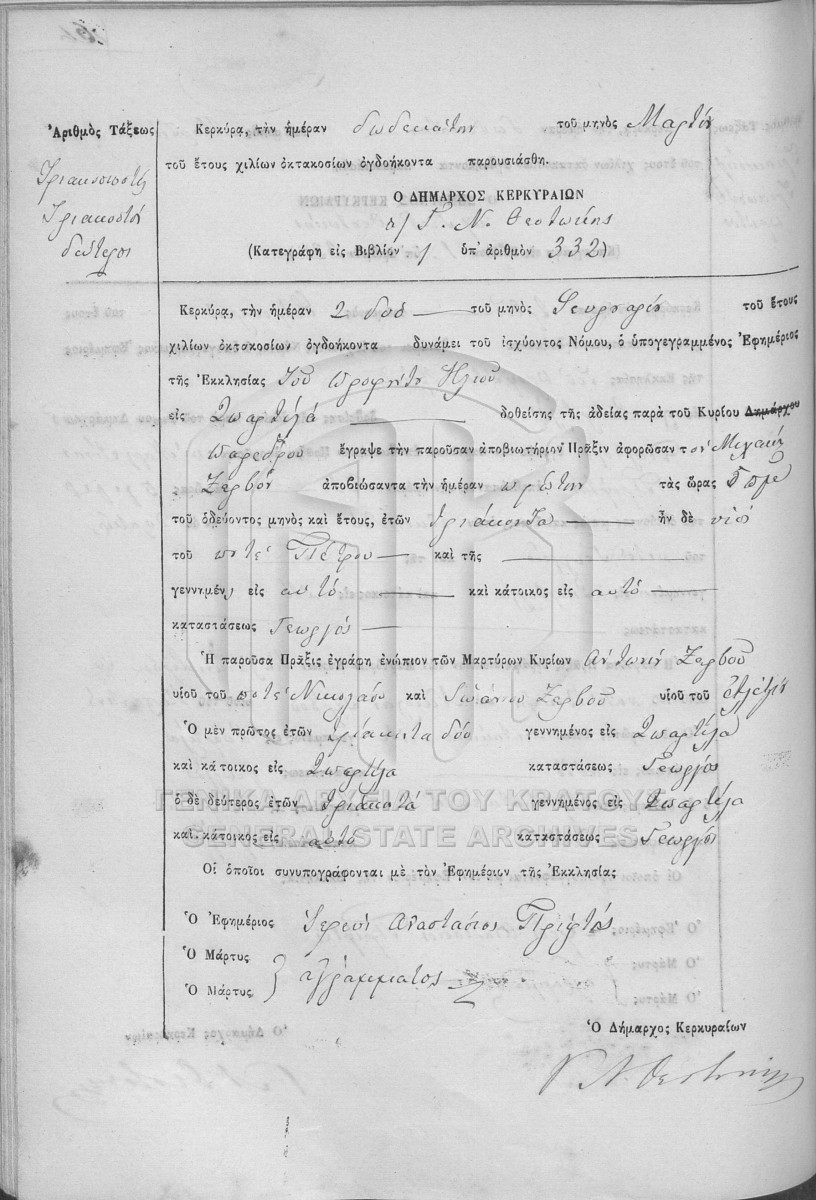 Ἀριθμὸς Τάξεως
Τριακοσιοστός
Τριακοστός
δεύτερος
Κερκύρα, τὴν ἡμέραν δωδεκάτην τοῦ μηνὸς Μαρτίου
τοῦ ἔτους χιλίων ὀκτακοσίων ὀγδοήκοντα παρουσιάσθη.
Ὁ ΔΗΜΑΡΧΟΣ ΚΕΡΚΥΡΑΙΩΝ
Γ. Ν. Θεοτόκης
(Κατεγράφη εἰς Βιβλίον 1 ὑπ' ἀριθμὸν 332)
Κερκύρα, τὴν ἡμέραν 2 δύο τοῦ μηνὸς τοῦ ἔτους
χιλίων ὀκτακοσίων ὀγδοήκοντα δυνάμει τοῦ ἰσχύοντος Νόμου, ὁ ὑπογεγραμμένος Ἐφημέριος
τῆς Ἐκκλησίας Τοῦ Προφήτου Ηλιού
εἰς Σπαρτίλα δοθείσης τῆς ἀδείας παρὰ τοῦ Κυρίου Δημάρχου
Παρέδρου ἔγραψε τὴν παροῦσαν ἀποβιωτήριον Πρᾶξιν ἀφορῶσαν τον Μιχαήλ
Ζερβόν ἀποβιώσαντα τὴν ἡμέραν πρώτην τὰς ὥρας
τοῦ ὁδεύοντος μηνὸς καὶ ἔτους, ἐτῶν τριάκοντα ἦν δὲ υιός
τοῦ ποτέ Πέτρου καὶ τῆς
γεννημέν εἰς αυτό καὶ κάτοικος εἰς αυτό
καταστάσεως Γεωργός
Ἡ παροῦσα Πρᾶξις ἐγράφη ἐνώπιον τῶν Μαρτύρων Κυρίων Αντωνίου Ζερβού
υἱοῦ τοῦ ποτέ Νικολάου καὶ Ιωάννου Ζερβού υἱοῦ τοῦ
Ὁ μὲν πρῶτος ἐτῶν τριάκοντα δύο γεννημένος εἰς Σπαρτίλα
καὶ κάτοικος εἰς Σπαρτίλα καταστάσεως Γεωργός
ὁ δὲ δεύτερος ἐτῶν τριάκοντα γεννημένος εἰς Σπαρτίλα
καὶ κάτοικος εἰς αυτό καταστάσεως Γεωργός
ΓΕΝΙΚΑ ΑΡΧΕΙΑ ΤΟΥ ΚΡΑΤΟΥΣ
GENERAL STATE ARCHIVES
Οἱ ὁποῖοι συνυπογράφονται μὲ τὸν Ἐφημέριον τῆς Ἐκκλησίας
Ὁ Ἐφημέριος Ιερεύς Αναστάσιος Πρίφτης
Ὁ Μάρτυς
Ὁ Μάρτυς } αγράμματος
Ὁ Δήμαρχος Κερκυραίων
Γ Ν. Θεοτόκης